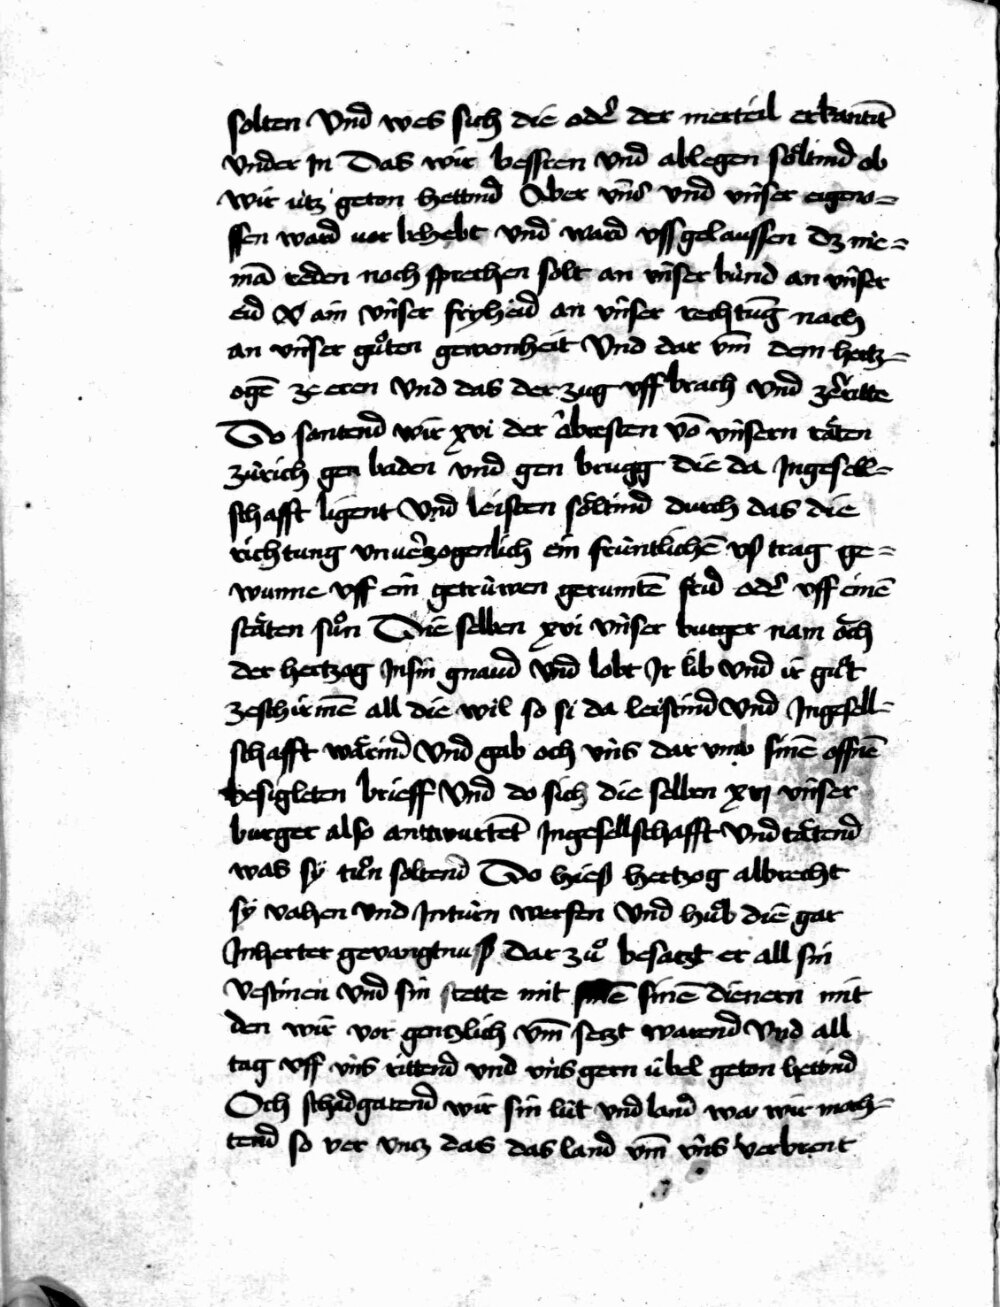 solten Vnd wes sich die oder̄ der merteil erkantīt
vnder In Das wir bessren vnd ablegen soͤltind ob
wir ützͥ geton hettind Aber vns vnd vnser eigno=
ssen ward vor behebt vnd ward vss gelaussen dz nie=
mā reden noch sprechen solt an vnser bünd an vnser
eid an vnser fryheid an vnser rechtung nach
an vnser guͦten gewonheit Vnd dar vm̄ dem hertz=
ogē ze eren Vnd das der zug vff brach vnd zerritte
Do santend wir xvi der obresten vō vnsern räten
zürich gen baden vnd gen brugg die da Ingesell=
schafft ligent Vnd leisten soͤltind durch das die
richtung vnuerzogenlich ein früntlichē vs trag ge=
wunne vff ein getrüwen gerumtē frid oder̄ vff einē
stäten suͦn Die selben xvi vnser burger nam och
der hertzog Insin gnaud vnd lobt Ir lib Vnd ir guͦt
ze schirmē all die wil so si da leistind Vnd Ingesell=
schafft wärind Vnd gab och vns dar vmb sinē offnē
besigleten brieff Vnd do sich die selben xvi vnser
burger also antwurtēt Ingesellschafft Vnd tätend
was sy tuͦn soltend Do hiess hertzog albrecht
sy vahen vnd Inturn werfen Vnd huͦb die gar
Inherter gevangtnuss dar zuͦ besatzt er all sin
Vestinen vnd sin stette mit sinē dienern mit
den wir vor gentzlich vm̄ setzt warend Vnd all
tag vff vns rittend vnd vns gern übel geton hettind
Och schadgatend wir sin lüt vnd land wa wir moch=
tend so ver vntz das das land vm̄ vns verbrent